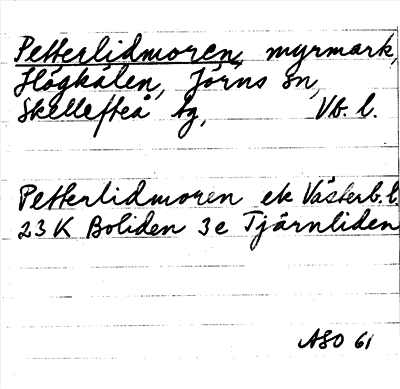 Petterlidmoren, myrmark,
Högkälen, Jörns sn,
Skellefteå tg, Vb. l.
Petterlidmoren ek Västerb. l.
23 K Boliden 3e Tjärnliden
ASO 61